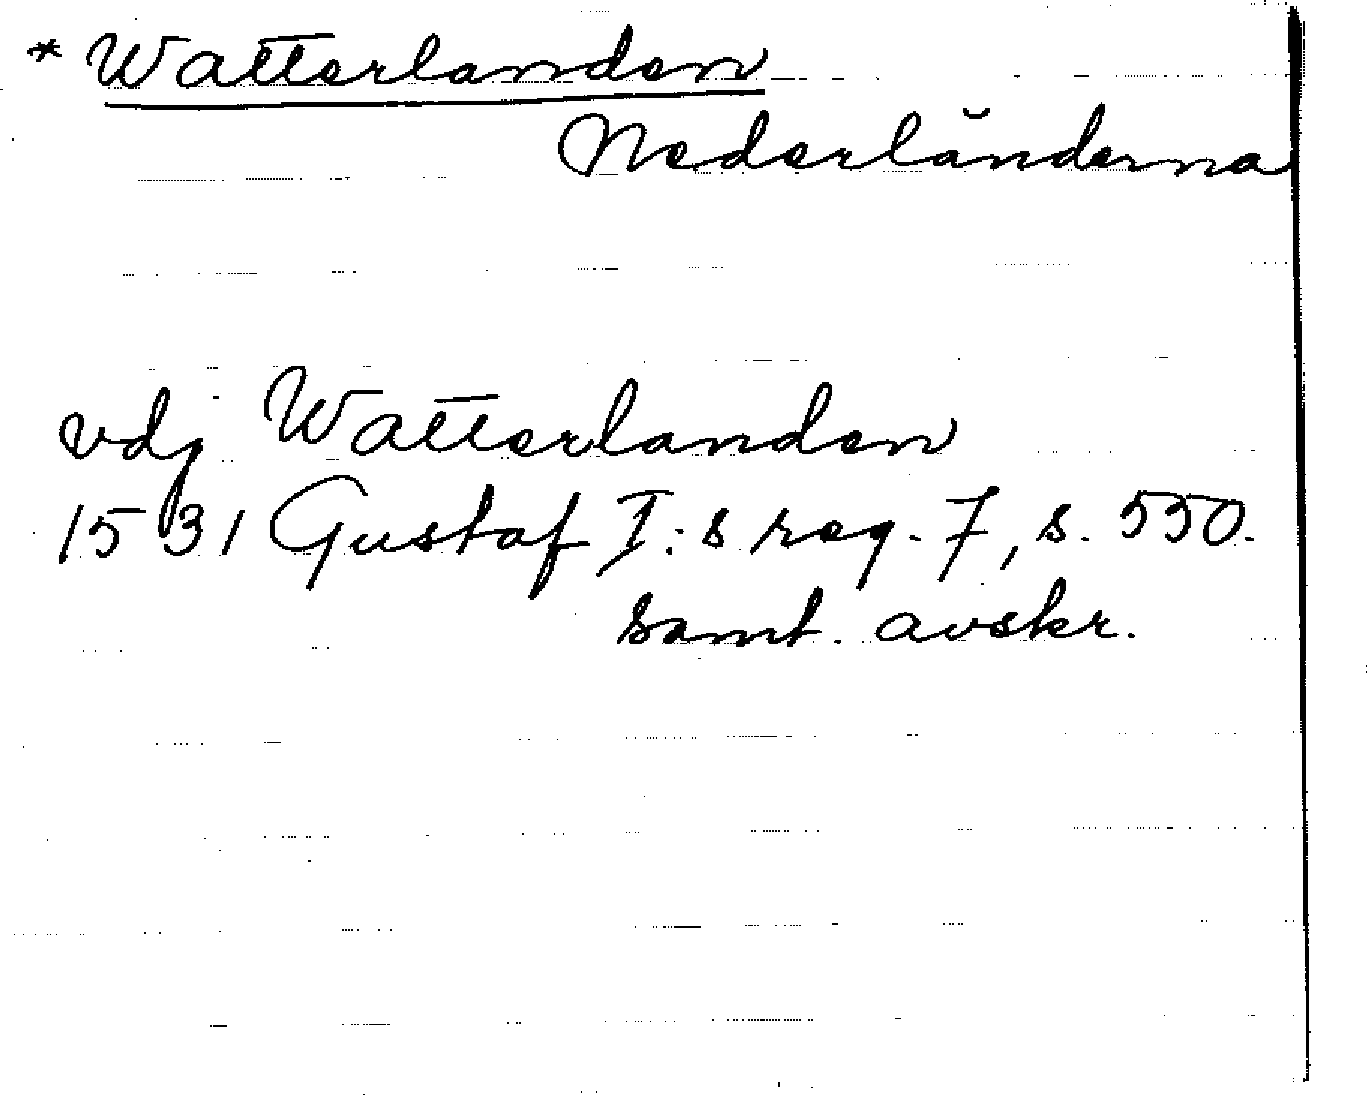 * Watterlanden
Nederländerna
vdj Watterlanden
1531 Gustaf I:s reg. 7, s. 550.
samt. avskr.